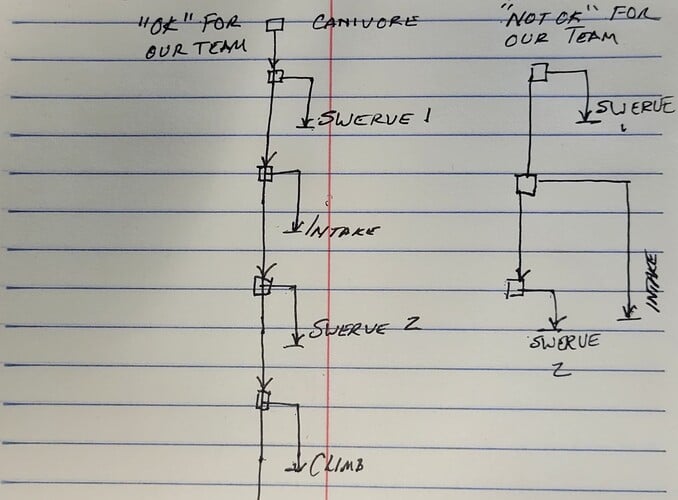 "OK" FOR
OUR TEAM
CANIVORE
SWERVE 1
INTAKE
SWERVE 2
CLIMB
"NOT OK" FOR
OUR TEAM
SWERVE
1
INTAKE
SWERVE
2